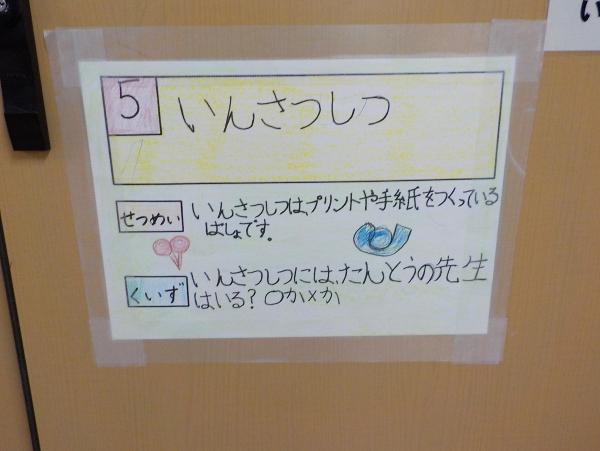 い
5
いんさつしつ
せつめい
いんさつしつは、プリントや手紙をつくっている
ばしょです。
くいず
いんさつしつには、たんとうの先生
はいる?〇か×か